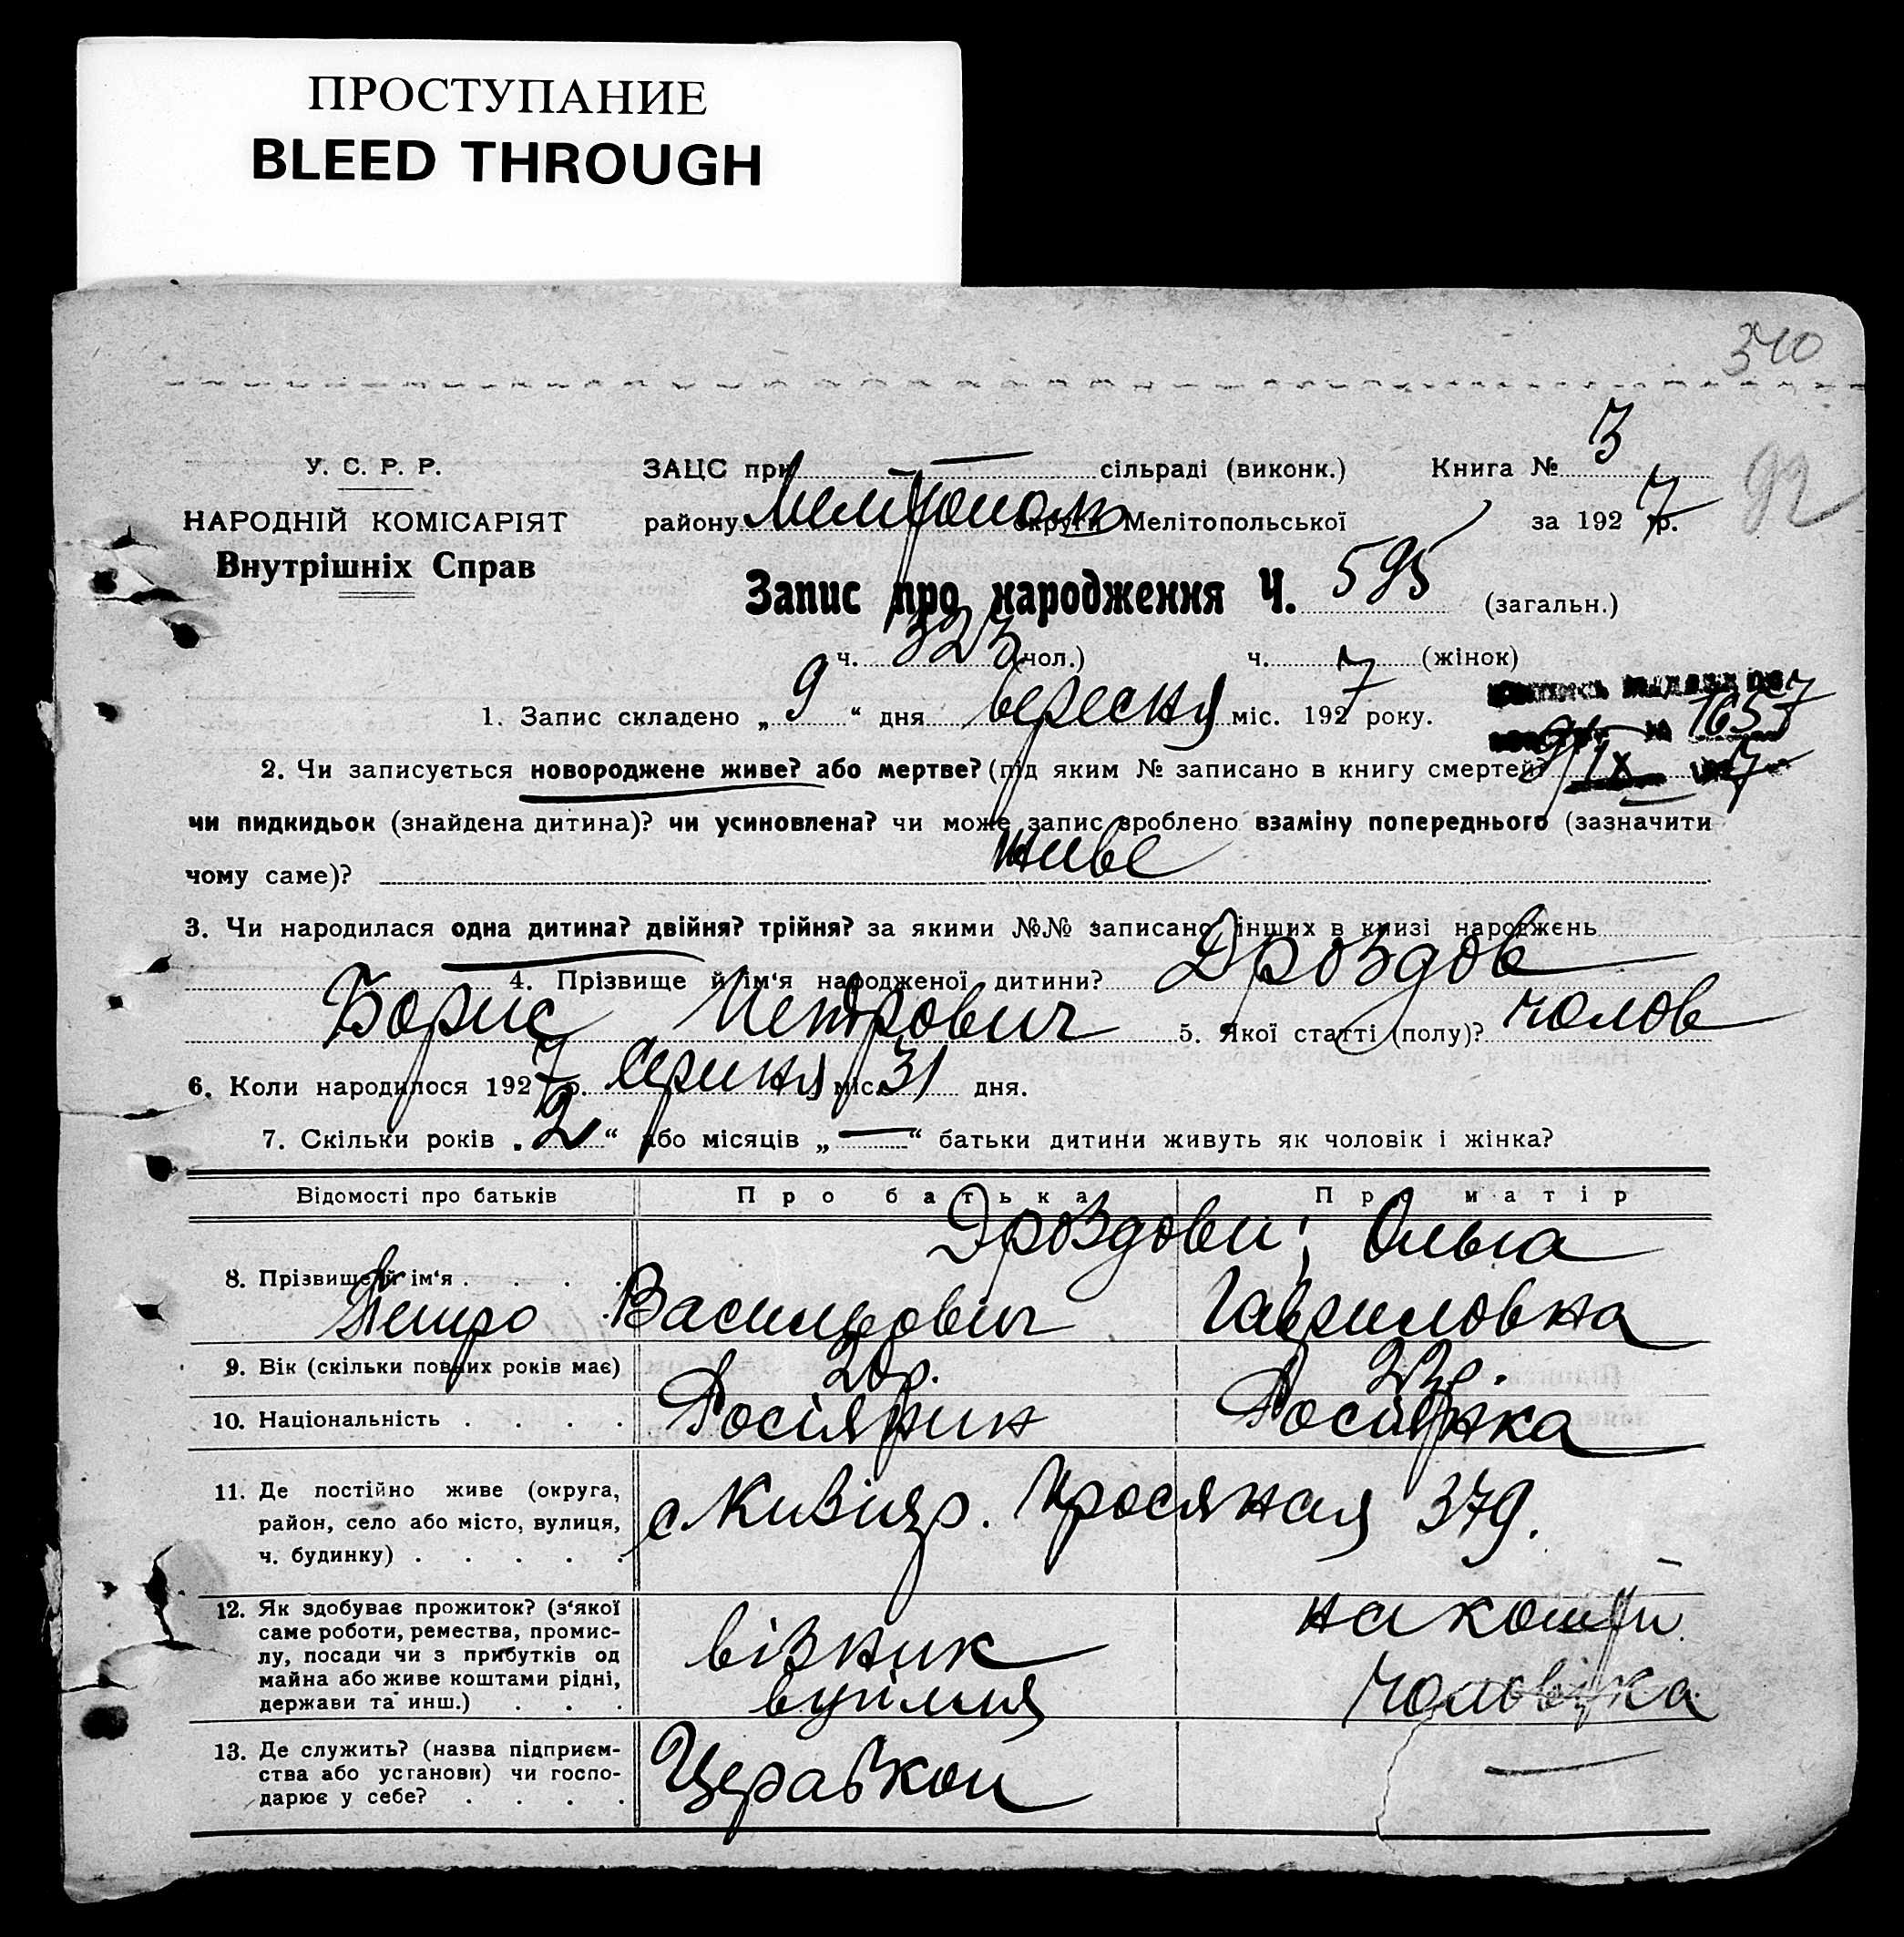 ПРОСТУПАНИЕ
BLEED THROUGH
310
У. С. Р. Р.
НАРОДНІЙ КОМІСАРІЯТ
Внутрішніх Справ
ЗАЦС при — сільраді (виконк.) Книга № 3
92
району Мелітополь округи Мелітопольської за 1927 р.
Запис про народження Ч. 595 (загальн.)
ч. 323 (чол.) ч. (жінок)
1. Запис складено „ 9 “ дня вересня міс. 1927 року.
№ 1657
9/IX 7
2. Чи записується новороджене живе? або мертве? (під яким № записано в книгу смертей?
чи пидкидьок (знайдена дитина)? чи усиновлена? чи може запис зроблено взаміну попереднього (зазначити
чому саме)? живе
3. Чи народилася одна дитина? двійня? трійня? за якими №№ записано інших в книзі народжень
4. Прізвище й ім‘я народженої дитини? Дроздов
Борис Петрович 5. Якої статті (полу)? чолов
6. Коли народилося 1927 р. серпня міс. 31 дня.
7. Скільки років „ 2 “ або місяців „ — “ батьки дитини живуть як чоловік і жінка?
Відомості про батьків Про батька Про матір
8. Прізвище й ім‘я . . . . Дроздови; Ольга
Петро Василєвич Гавриловна
9. Вік (скільки повних років має) 20р. 22р.
10. Національність . . . . Росіянин Росіянка
11. Де постійно живе (округа,
район, село або місто, вулиця,
ч. будинку) . . . . .
с Кизияр. Просяная 379.
12. Як здобуває прожиток? (з‘якої
саме роботи, ремества, промис-
лу, посади чи з прибутків од
майна або живе коштами рідні,
держави та инш.) . . .
візник
вугілля
на кошти
чоловіка
13. Де служить? (назва підприєм-
ства або установи) чи госпо-
дарює у себе? . . . .
Церабкоп —